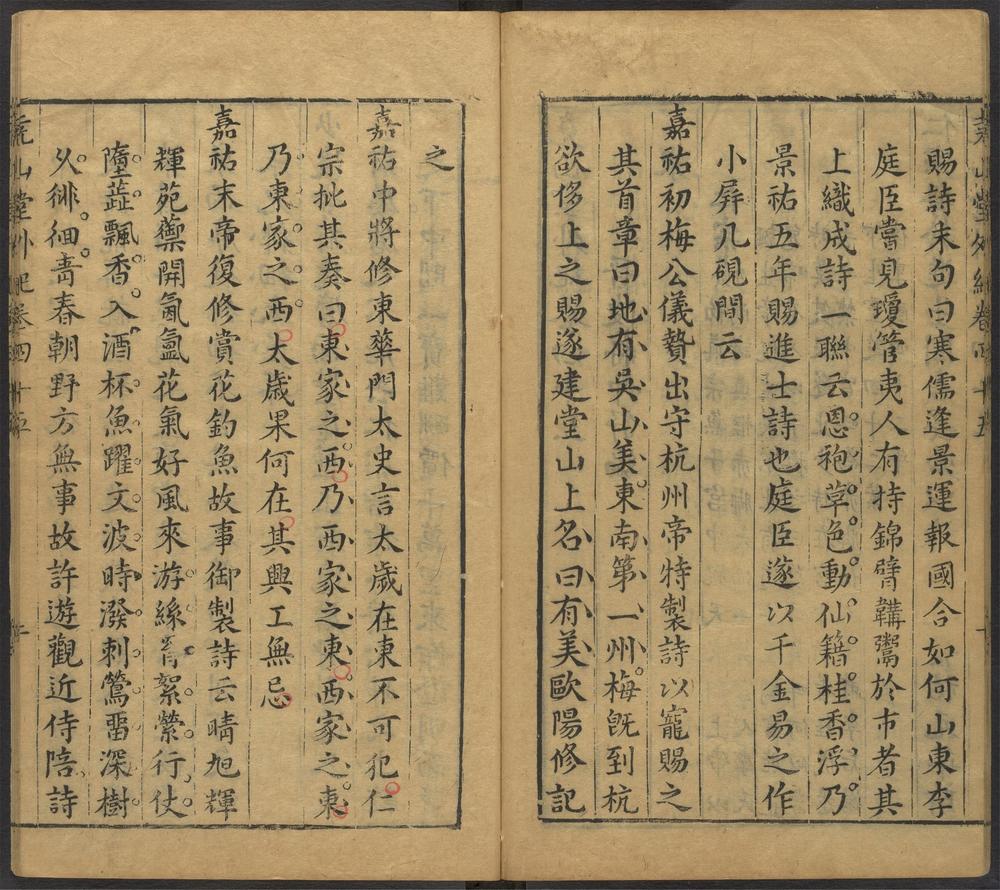 賜詩末句曰寒儒逢景運報國合如何山東李
庭臣嘗見瓊管夷人有持錦臂韝鬻於市者其
上織成詩一聯云恩袍草色動仙籍桂香浮乃
景祐五年賜進士詩也庭臣遂以千金易之作
小屏几硯間云
嘉祐初梅公儀贄出守杭州帝特製詩以寵賜之
其首章曰地有吳山美東南第一州梅旣到杭
欲侈上之賜遂建堂山上名曰有美歐陽修記
之
嘉祐中將修東華門太史言太歲在東不可犯仁
宗批其奏曰東家之西乃西家之東西家之東
乃東家之西太歲果何在其興工無忌
嘉祐末帝復修賞花釣魚故事御製詩云晴旭輝
輝苑蘌開氤氳花氣好風來游絲罥絮縈行仗
墮蘂飄香入酒杯魚躍文波時潑剌鶯畱深樹
乆徘徊靑春朝野方無事故許遊觀近侍陪詩
堯山堂外紀卷四十五